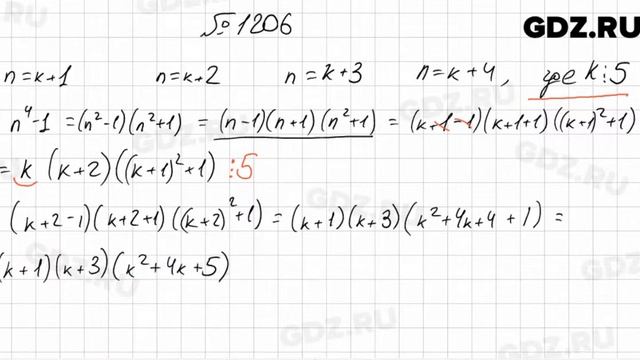 № 1206
GDZ.RU
n=k+1 n=k+2 n=k+3 n=k+4, где k⋮5
n⁴-1 = (n²-1)(n²+1) = (n-1)(n+1)(n²+1) = (k+1-1)(k+1+1)((k+1)²+1)
= k (k+2)((k+1)²+1) ⋮5
(k+2-1)(k+2+1)((k+2)²+1) = (k+1)(k+3)(k²+4k+4+1) =
(k+1)(k+3)(k²+4k+5)